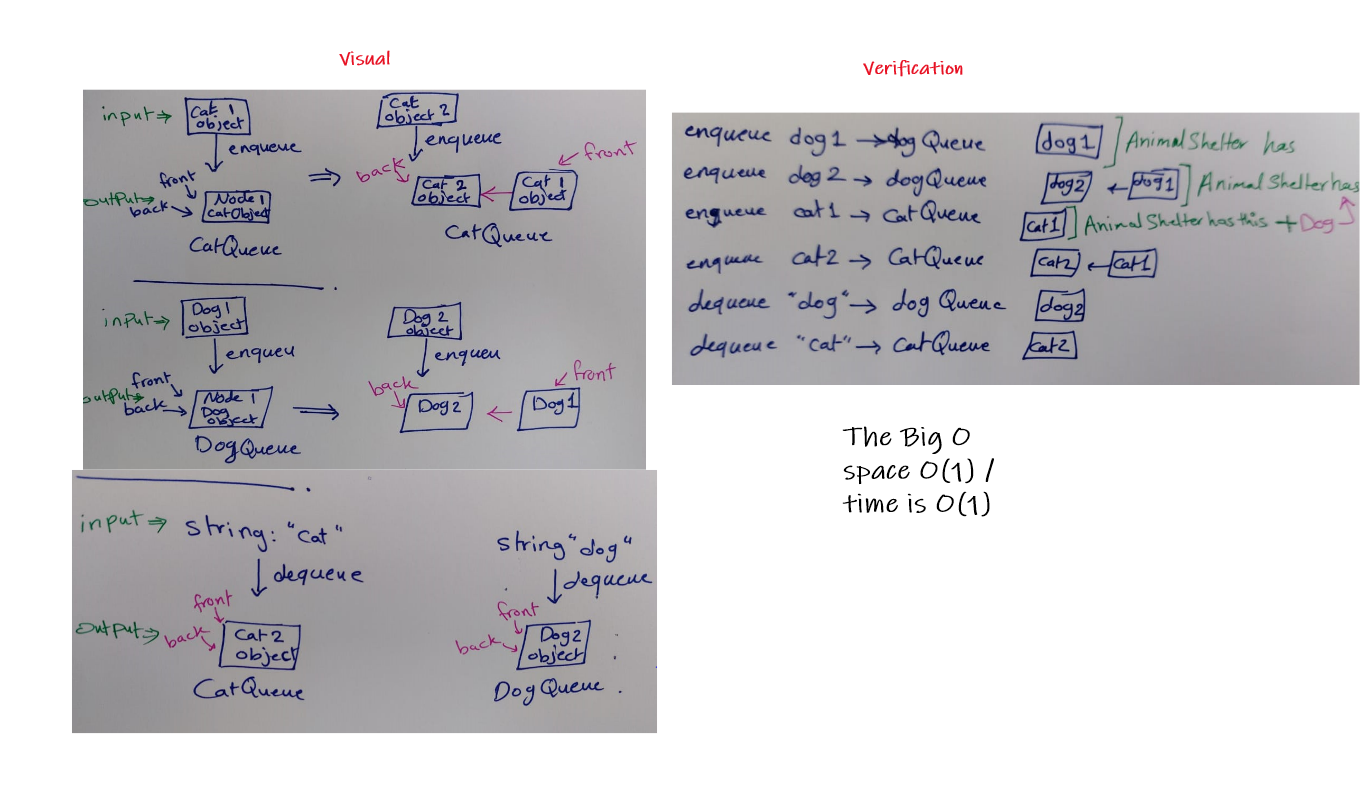 Visual
input⇒
Cat 1
object
enqueue
front
output⇒
back
Node 1
catObject
CatQueue
⇒
Cat
object 2
enqueue
back
front
Cat 2
object
Cat 1
object
CatQueue
input⇒
Dog 1
object
enqueu
front
output⇒
back
Node 1
Dog
object
DogQueue
⇒
Dog 2
object
enqueu
back
front
Dog2
Dog1
input⇒
string: "Cat"
dequeue
front
output⇒
back
Cat 2
object
CatQueue
string "dog"
dequeue
front
back
Dog2
object
DogQueue.
Verification
enqueue dog1 → dog Queue dog1 ] AnimalShelter has
enqueue dog2 → dogQueue dog2 ← dog1 ] AnimalShelter has
enqueue cat1 → CatQueue cat1 ] AnimalShelter has this + Dog
enqueue cat2 → CatQueue cat2 ← cat1
dequeue "dog" → dog Queue dog2
dequeue "cat" → CatQueue cat2
The Big O
space O(1) /
time is O(1)